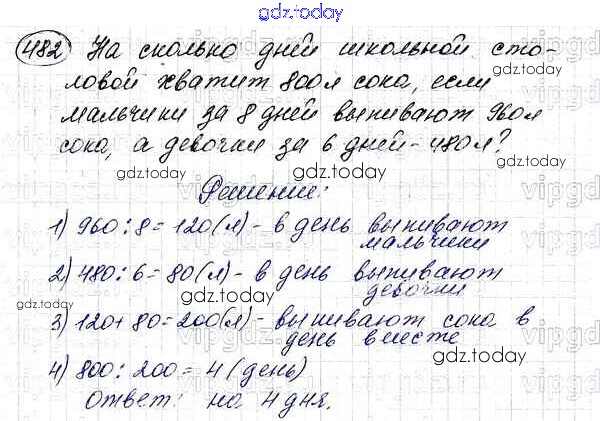 gdz.today
482 На сколько дней школьной сто-
ловой хватит 800л сока, если
мальчики за 8 дней выпивают 960л
сока, а девочки за 6 дней - 480л?
gdz.today
Решение:
gdz.today
1) 960:8=120(л)- в день выпивают
мальчики
2) 480:6=80(л)- в день выпивают
gdz.today
девочки
3) 120+80=200(л)- выпивают сока в
день вместе
gdz.today
4) 800:200=4(день)
Ответ: на 4 дня.
gdz.today